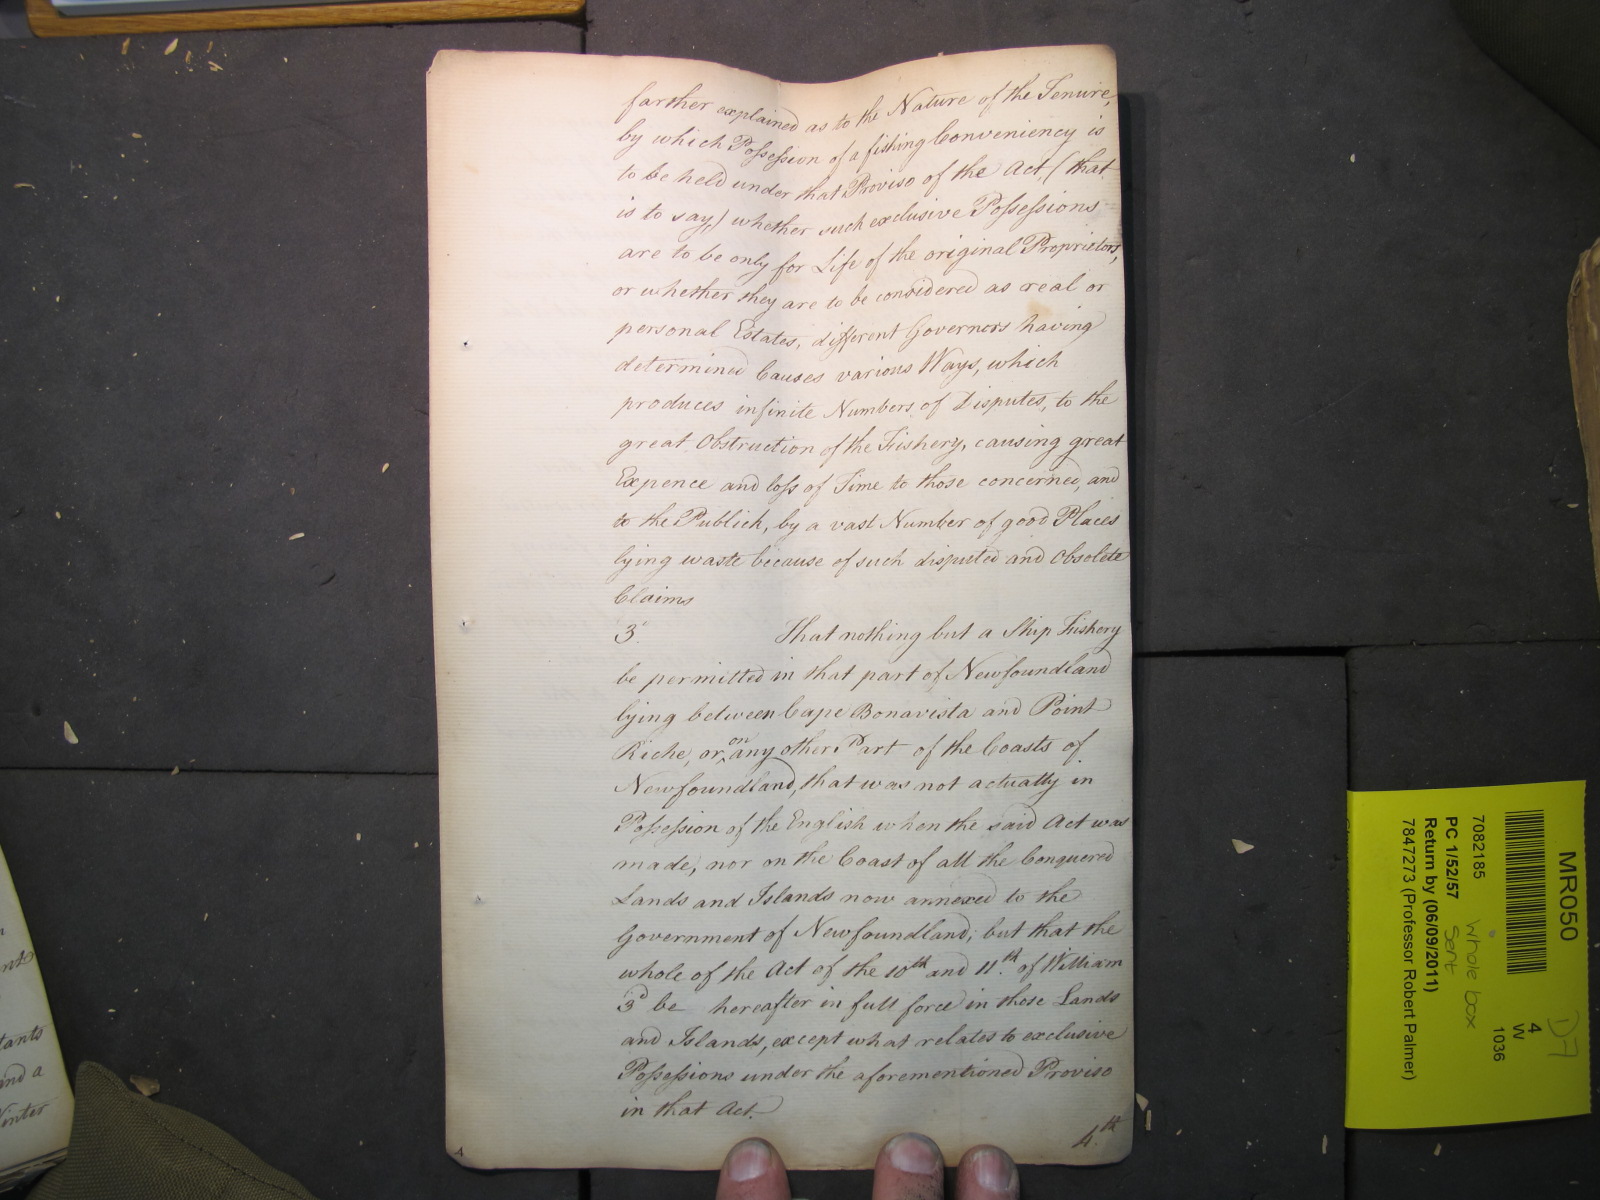 farther explained as to the Nature of the Tenure,
by which Possession of a fishing Conveniency is
to be held under that Proviso of the Act, (that
is to say,) whether such exclusive Possessions
are to be only for Life of the original Proprietors,
or whether they are to be considered as real or
personal Estates, different Governors having
determined Causes various Ways, which
produces infinite Numbers of Disputes, to the
great Obstruction of the Fishery, causing great
Expence and loss of Time to those concerned, and
to the Publick, by a vast Number of good Places
lying waste because of such disputed and Obsolete
Claims
3. That nothing but a Ship Fishery
be permitted in that part of Newfoundland
lying between Cape Bonavista and Point
Riche, or on any other Part of the Coasts of
Newfoundland, that was not actually in
Possession of the English when the said Act was
made, nor on the Coast of all the Conquered
Lands and Islands now annexed to the
Government of Newfoundland; but that the
whole of the Act of the 10th and 11th of William
3d be hereafter in full force in those Lands
and Islands, except what relates to exclusive
Possessions under the aforementioned Proviso
in that Act.
4th
4
tants
and a
Winter
MR050
D7
4
W
1036
7082185
Whole box
Sent
PC 1/52/57
Return by (06/09/2011)
7847273 (Professor Robert Palmer)